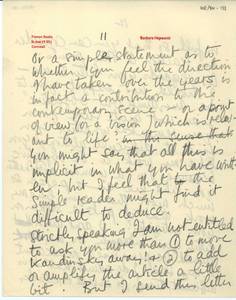 Trewyn Studio
St. Ives
Cornwall
Barbara Hepworth
11
Or a simple statement as to
whether you feel the direction
I have taken over the years is
in fact a contribution to the
contemporary scene – or a point
of view (or a vision) which is relev-
ant to life: in the sense that
you might say that all this is
implicit in what you have writt
en: but I feel that to the
simple reader might find it
difficult to deduce.
Strictly speaking I am not entitled
to ask you more than ① to move
Kandinsky away: & ② to add
or amplify the article a little
bit. But I send this letter